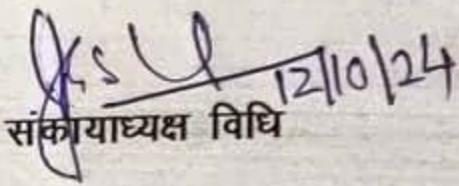 12/10/24
संकायाध्यक्ष विधि